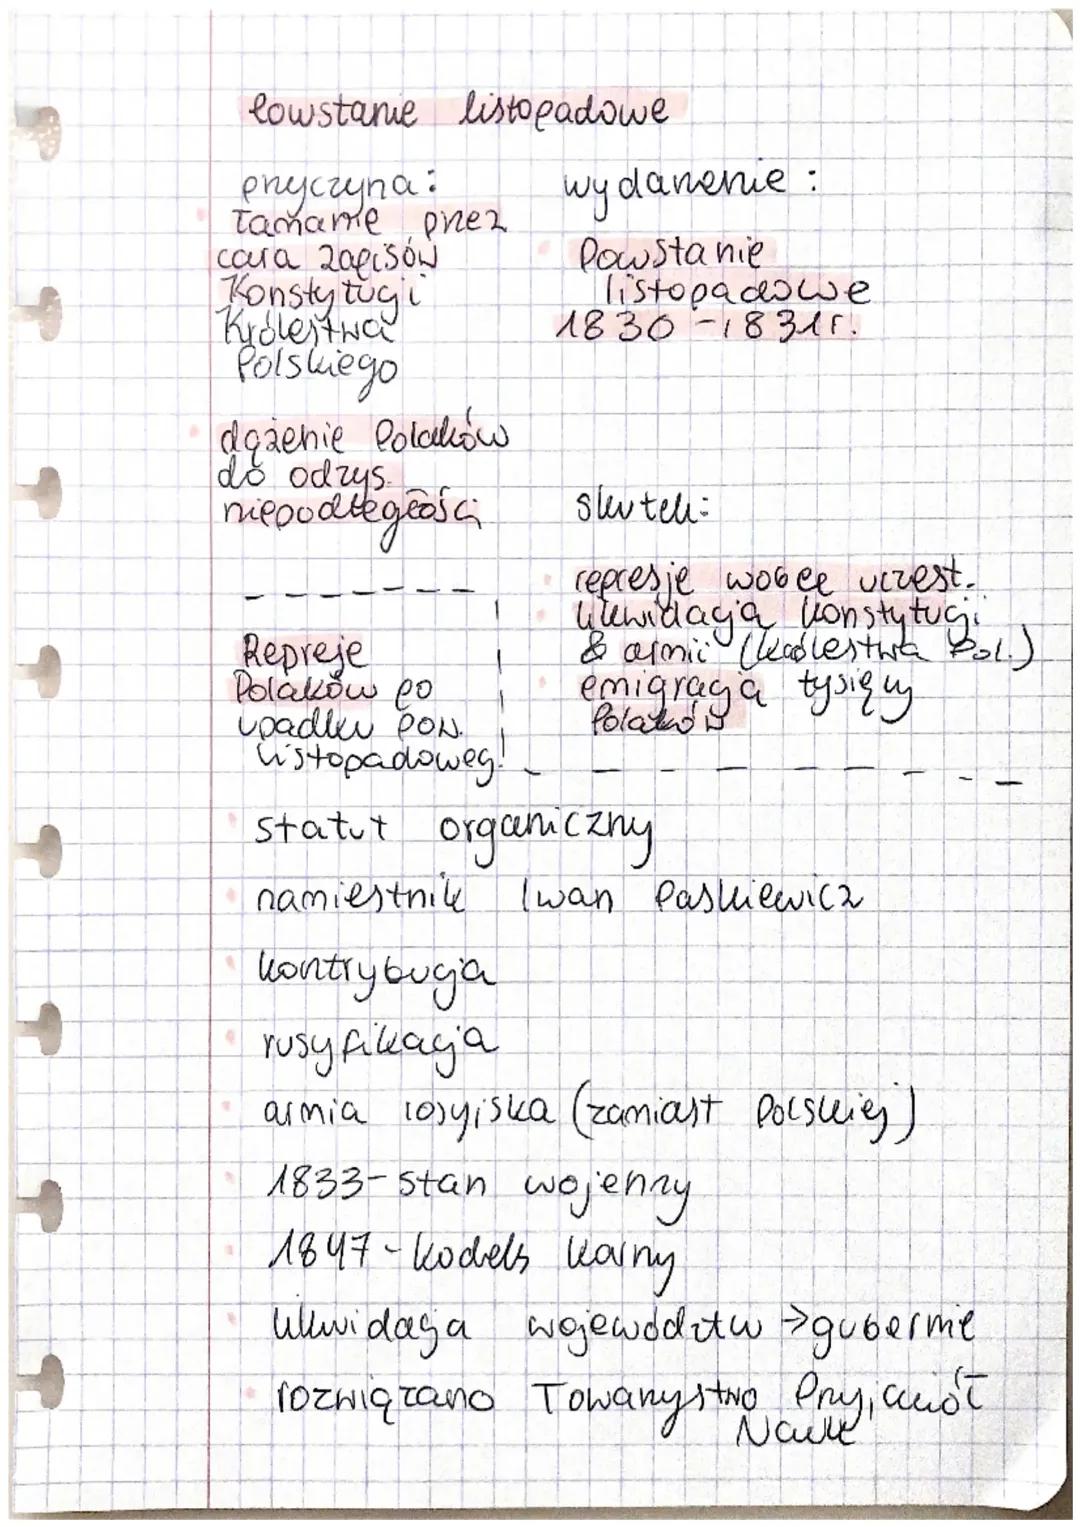 Powstanie listopadowe
przyczyna:
łamanie przez
cara zapisów
Konstytucji
Królestwa
Polskiego
dążenie Polaków
do odzys.
niepodległości
wydarzenie:
Powstanie
listopadowe
1830-1831r.
skutek:
represje wobec uczest.
likwidacja konstytucji
& armii (królestwa Pol.)
emigracja tysięcy
Polaków
Represje
Polaków po
upadku pow.
listopadoweg.
statut organiczny
namiestnik Iwan Paskiewicz
kontrybucja
rusyfikacja
armia rosyjska (zamiast Polskiej)
1833-stan wojenny
1847-kodeks karny
likwidacja województw → gubernie
rozwiązano Towarzystwo Przyjaciół
Nauk